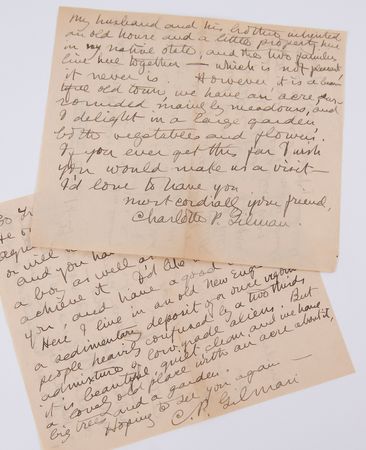 My husband and his brother inherited
an old house and a little property here
in my native state, and the two families
live here together — which is not pleasant,
it never is. However, it is a beau-
tiful old town, we have an acre sur-
rounded mainly by meadows, and
I delight in a large garden
both vegetables and flowers.
If you ever get this far I wish
you would make us a visit —
I'd love to have you
most cordially your friend,
Charlotte P. Gilman.
30
He
agree
or will
and you have
a boy as well as
achieve it. I'd like
you, and have a good
Here I live in an old New Eng
a sedimentary deposit of a once vigorous
people heavily confused by a two thirds
admixture of low-grade aliens. But
it is beautiful, quiet, clean, and we have
a lovely old place with an acre about it,
big trees and a garden.
Hoping to see you again —
C. P. Gilman